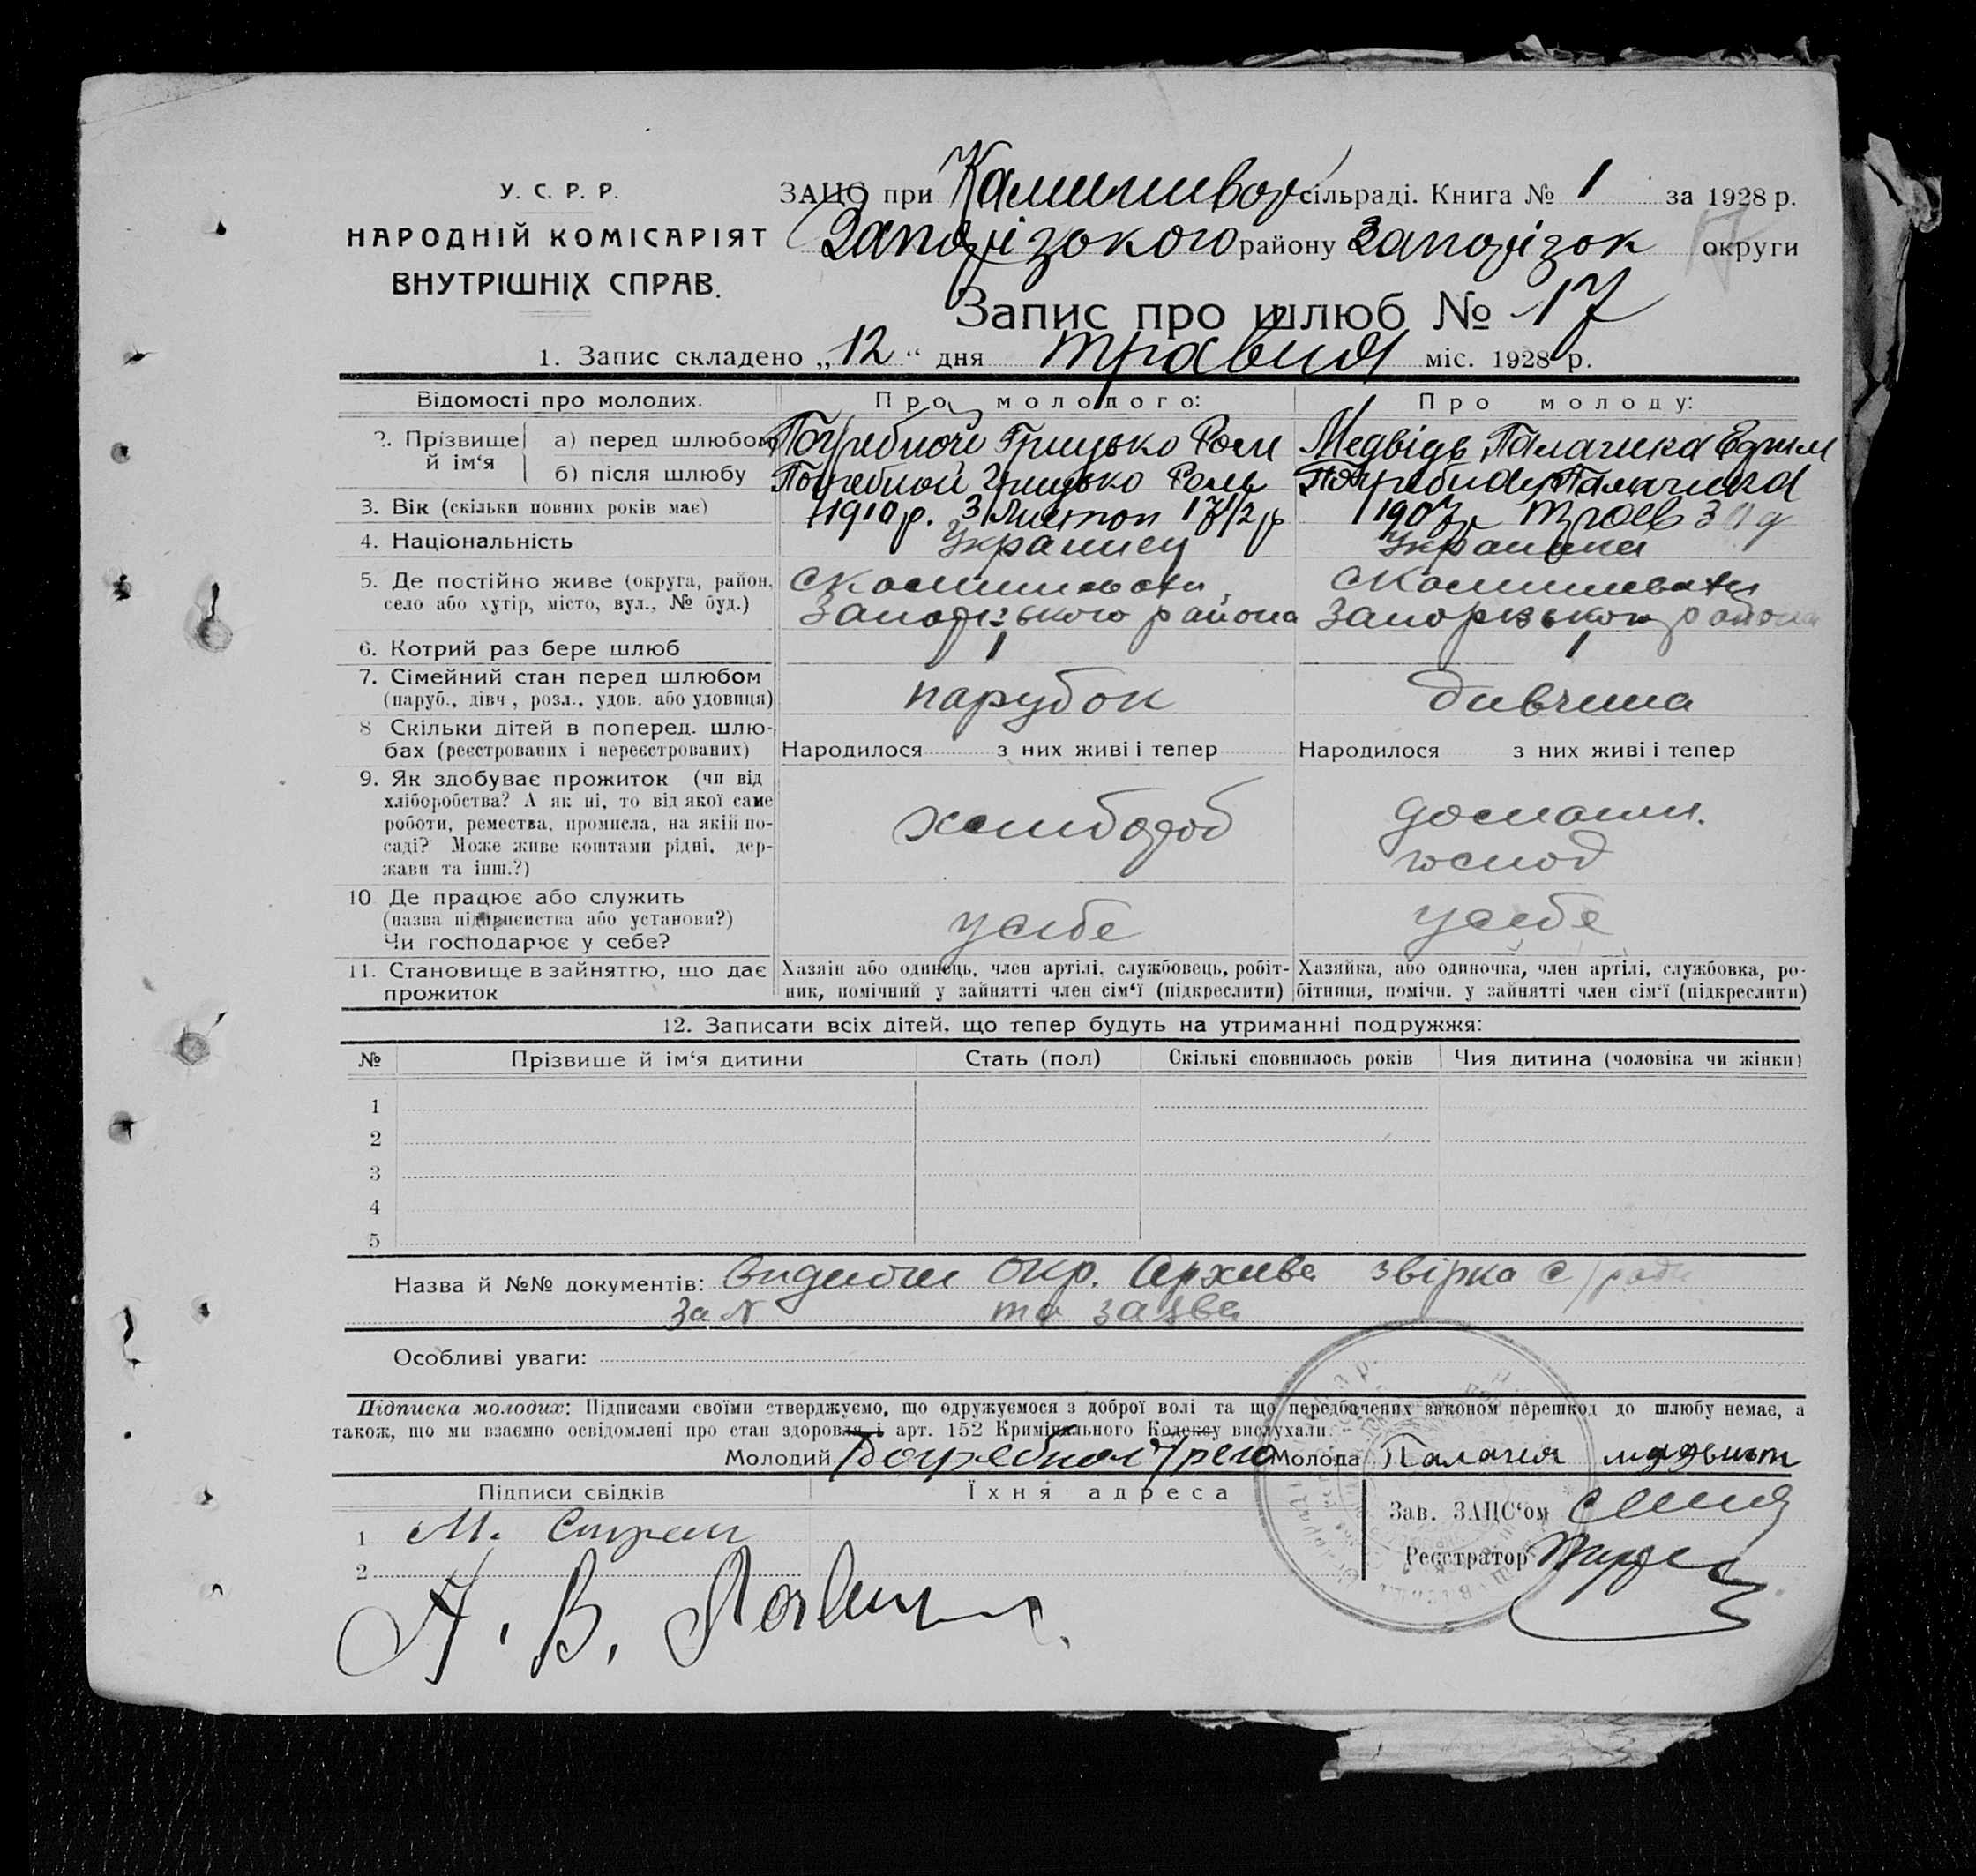 У. С. Р. Р.
НАРОДНІЙ КОМІСАРІЯТ
ВНУТРІШНІХ СПРАВ.
ЗАЦС при Камишеват сільраді. Книга № 1 за 1928 р.
Запорізького району Запорізьк округи
17
Запис про шлюб № 17
1. Запис складено „12“ дня травня міс. 1928 р.
Відомості про молодих. Про молодого: Про молоду:
2. Прізвище й ім‘я
а) перед шлюбом Погребной Грицько Ром Медвідь Палагика Ефим
б) після шлюбу Погребной Грицько Ром Погребная Палагика
3. Вік (скільки повних років має) 1910 р. 3 Листоп 17 1/2 р 1907 р
4. Національність Украинец Украинка
5. Де постійно живе (округа, район, село або хутір, місто, вул., № буд.)
с Камишевати Запорізького района
с Камишевати Запорізького района
6. Котрий раз бере шлюб 1 1
7. Сімейний стан перед шлюбом парубок дивчина
(паруб., дівч., розл., удов. або удовиця)
8 Скільки дітей в поперед. шлю-
бах (реєстрованих і нереєстрованих) Народилося з них живі і тепер Народилося з них живі і тепер
9. Як здобуває прожиток (чи від
хліборобства? А як ні, то від якої саме
роботи, ремества, промисла, на якій по-
саді? Може живе коштами рідні, дер-
жави та інш.?)
хлибороб
домашн.
господ
10 Де працює або служить
(назва підприємства або установи?)
Чи господарює у себе?
у себе у себе
11. Становище в зайняттю, що дає
прожиток
Хазяїн або одинець, член артілі, службовець, робіт-
ник, помічний у зайнятті член сім‘ї (підкреслити)
Хазяйка, або одиночка, член артілі, службовка, ро-
бітниця, помічн. у зайнятті член сім‘ї (підкреслити)
12. Записати всіх дітей, що тепер будуть на утриманні подружжя:
№ Прізвище й ім‘я дитини Стать (пол) Скількі сповнилось років Чия дитина (чоловіка чи жінки)
1
2
3
4
5
Назва й №№ документів: Окр. Архива звірка с/ради
За № та заява
Особливі уваги:
Підписка молодих: Підписами своїми стверджуємо, що одружуємося з доброї волі та що передбачених законом перешкод до шлюбу немає, а
також, що ми взаємно освідомлені про стан здоровля і арт. 152 Кримінального Кодексу вислухали.
Молодий Погребной Молода Палагея
Підписи свідків Їхня адреса
1 М.
2
А. В.
Зав. ЗАЦС‘ом
Реєстратор